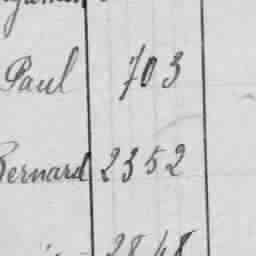 Paul 703
Bernard 2352
2848